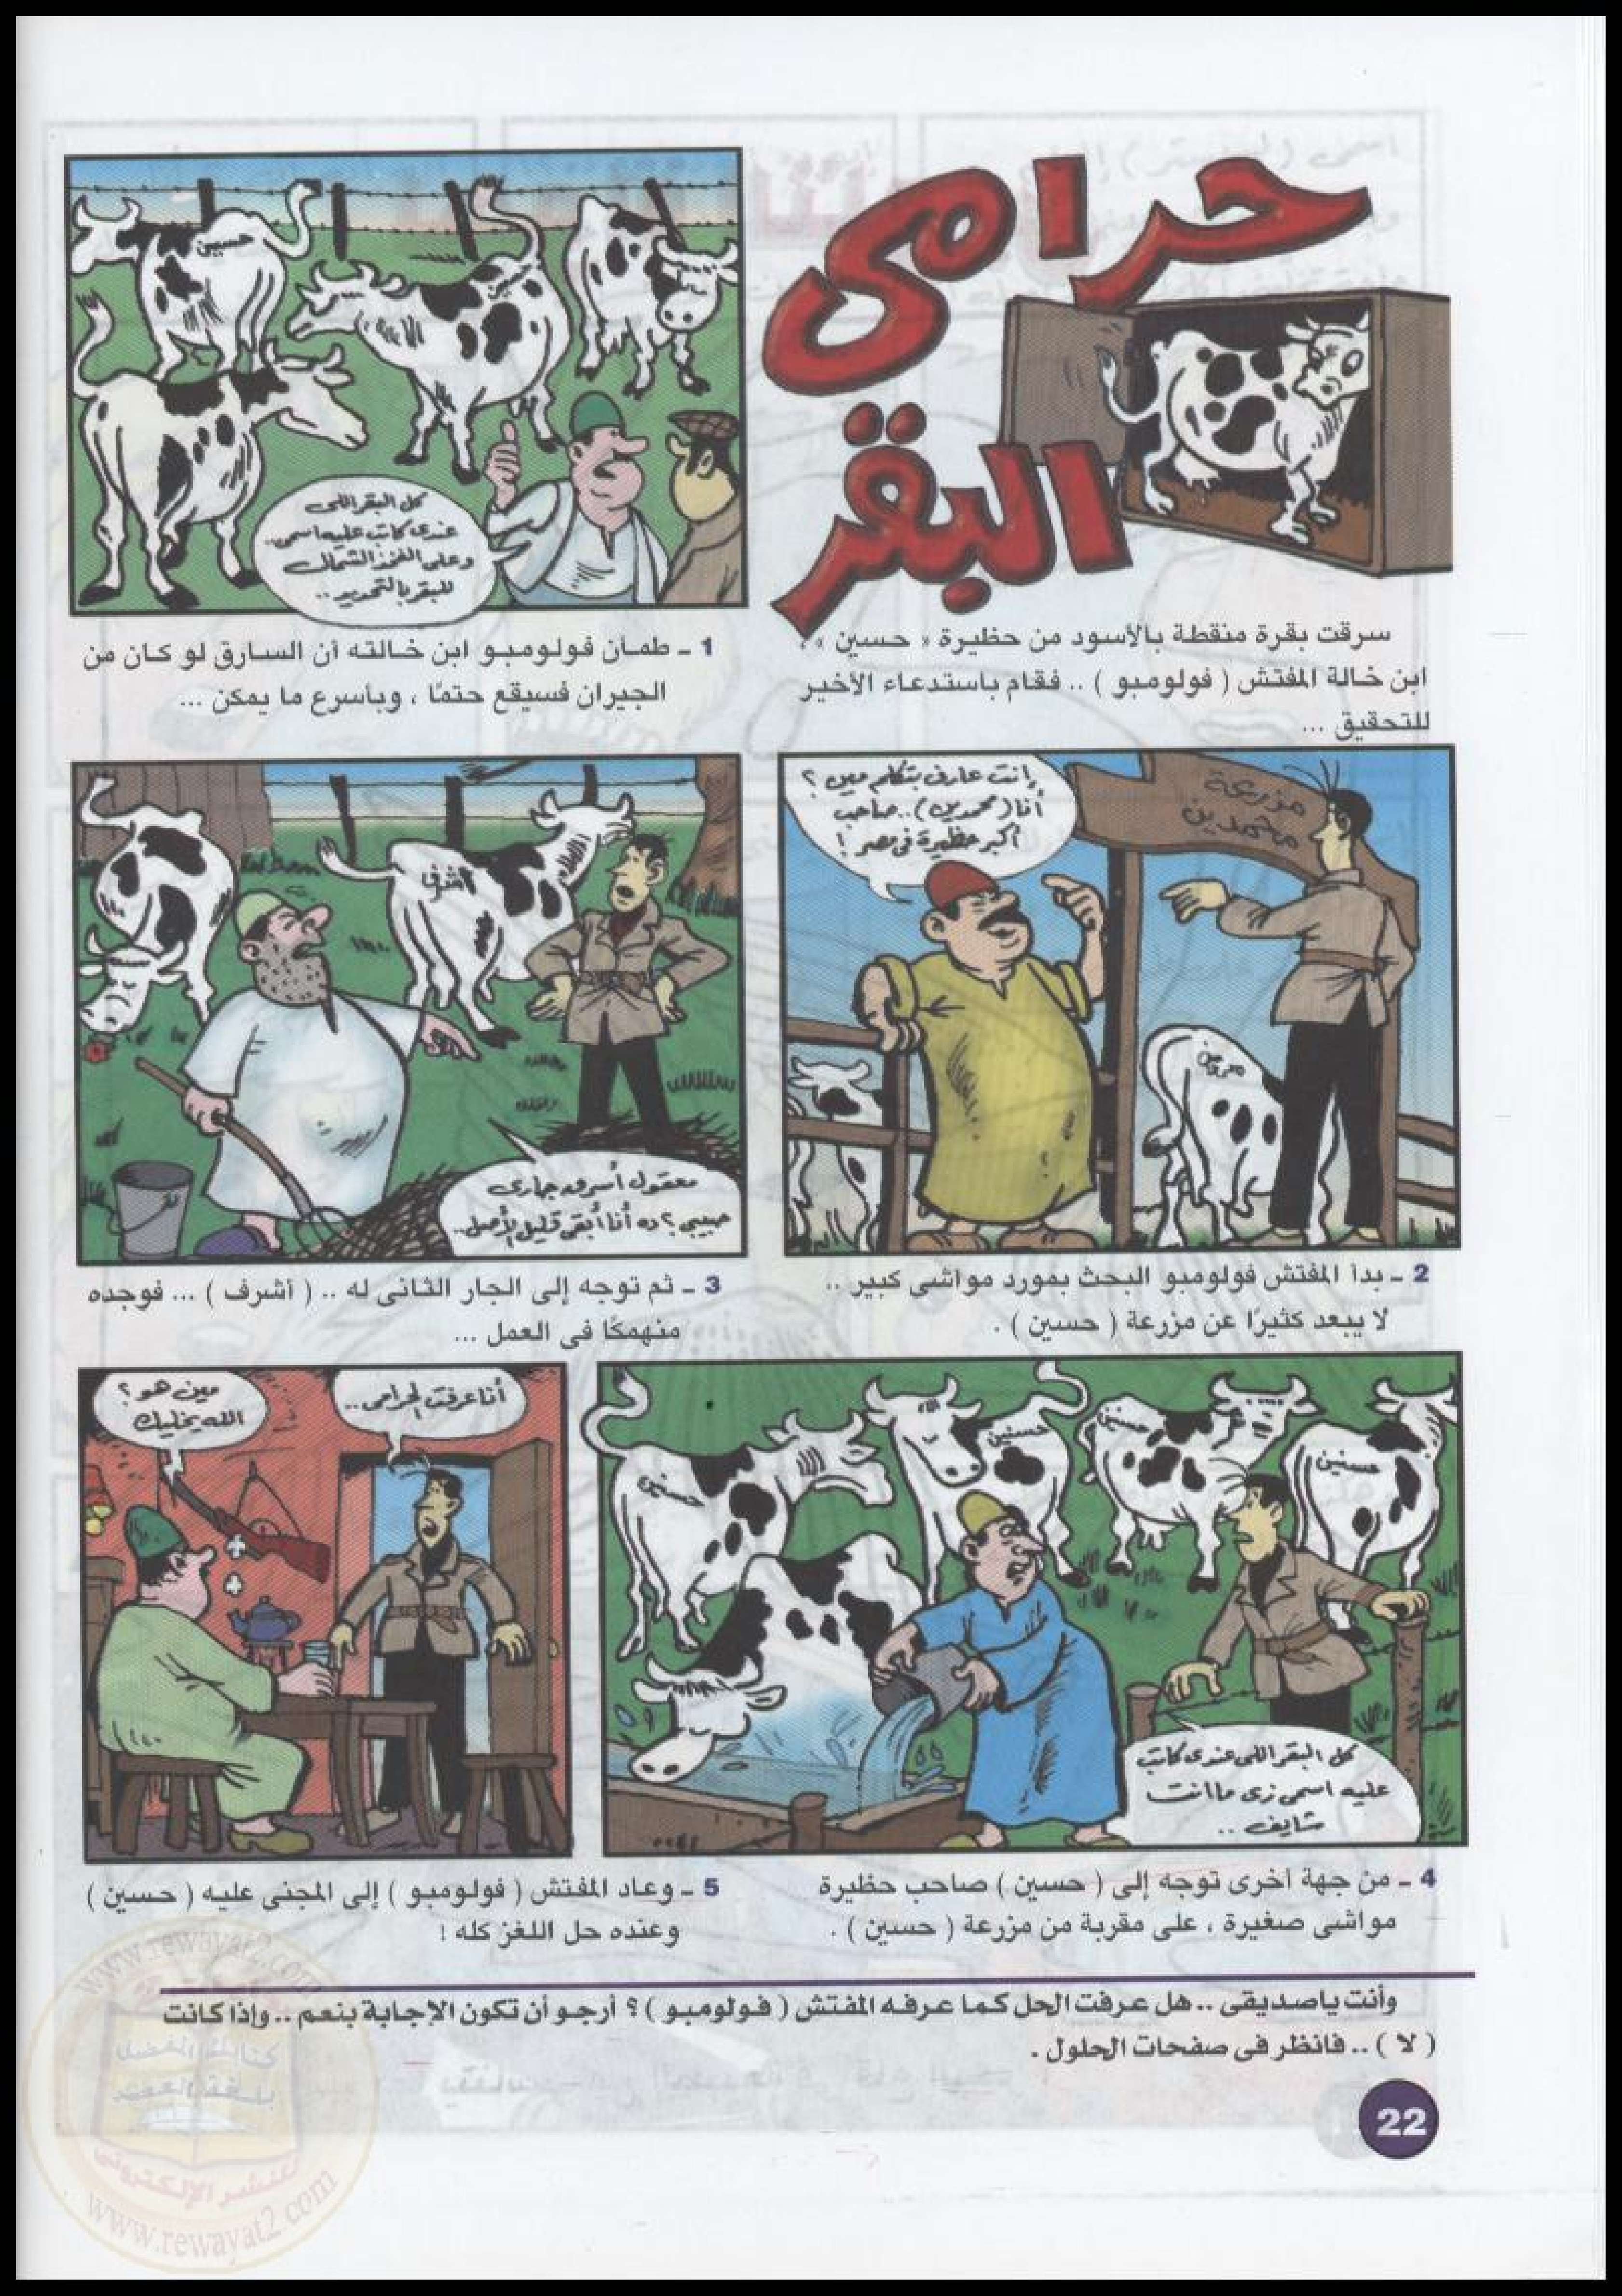 حرامى
البقر
سرقت بقرة منقطة بالأسود من حظيرة « حسين » ،
ابن خالة المفتش ( فولومبو ) .. فقام باستدعاء الأخير
للتحقيق ...
حسين
حسين
كل البقر اللى
عندى كاتب عليه اسمى ..
وعلى الفخذ الشمال
للبقر بالتحديد ..
1 ـ طمأن فولومبو ابن خالته أن السارق لو كان من
الجيران فسيقع حتمًا ، وبأسرع ما يمكن ...
إنت عارف بتكلم مين ؟
أنا ( محمدين ) .. صاحب
أكبر حظيرة فى مصر !
مزرعة
محمدين
محمدين
2 ـ بدأ المفتش فولومبو البحث بمورد مواشى كبير ..
لا يبعد كثيرًا عن مزرعة ( حسين ) .
أشرف
معقول أسرق جارى
حبيبى ؟ ده أنا أبقى قليل الأصل ..
3 ـ ثم توجه إلى الجار الثانى له .. ( أشرف ) ... فوجده
منهمكًا فى العمل ...
حسنين
حسنين
حسنين
حسنين
كل البقر اللى عندى كاتب
عليه اسمى زى ما انت
شايف ..
4 ـ من جهة أخرى توجه إلى ( حسين ) صاحب حظيرة
مواشى صغيرة ، على مقربة من مزرعة ( حسين ) .
أنا عرفت الحرامى ..
مين هو ؟
الله يخليك
5 ـ وعاد المفتش ( فولومبو ) إلى المجنى عليه ( حسين )
وعنده حل اللغز كله !
وأنت ياصديقى .. هل عرفت الحل كما عرفه المفتش ( فولومبو ) ؟ أرجو أن تكون الإجابة بنعم .. وإذا كانت
( لا ) .. فانظر فى صفحات الحلول .
22
www.rewayat2.com
للنشر الإلكترونى
www.rewayat2.com